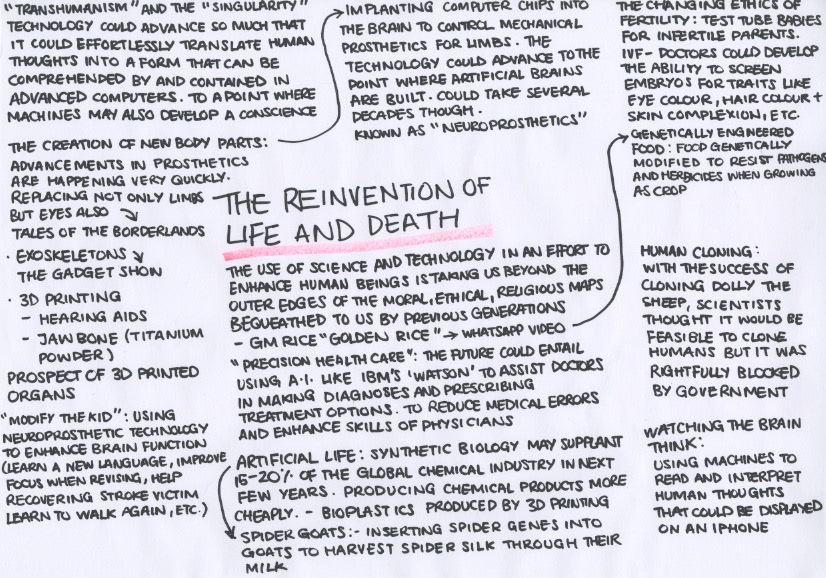 "TRANSHUMANISM" AND THE "SINGULARITY"
TECHNOLOGY COULD ADVANCE SO MUCH THAT
IT COULD EFFORTLESSLY TRANSLATE HUMAN
THOUGHTS INTO A FORM THAT CAN BE
COMPREHENDED BY AND CONTAINED IN
ADVANCED COMPUTERS. TO A POINT WHERE
MACHINES MAY ALSO DEVELOP A CONSCIENCE
THE CREATION OF NEW BODY PARTS:
ADVANCEMENTS IN PROSTHETICS
ARE HAPPENING VERY QUICKLY.
REPLACING NOT ONLY LIMBS
BUT EYES ALSO
TALES OF THE BORDERLANDS
· EXOSKELETONS
THE GADGET SHOW
· 3D PRINTING
- HEARING AIDS
- JAW BONE (TITANIUM
POWDER)
PROSPECT OF 3D PRINTED
ORGANS
"MODIFY THE KID": USING
NEUROPROSTHETIC TECHNOLOGY
TO ENHANCE BRAIN FUNCTION
(LEARN A NEW LANGUAGE, IMPROVE
FOCUS WHEN REVISING, HELP
RECOVERING STROKE VICTIM
LEARN TO WALK AGAIN, ETC.)
IMPLANTING COMPUTER CHIPS INTO
THE BRAIN TO CONTROL MECHANICAL
PROSTHETICS FOR LIMBS. THE
TECHNOLOGY COULD ADVANCE TO THE
POINT WHERE ARTIFICIAL BRAINS
ARE BUILT. COULD TAKE SEVERAL
DECADES THOUGH.
KNOWN AS "NEUROPROSTHETICS"
THE REINVENTION OF
LIFE AND DEATH
THE USE OF SCIENCE AND TECHNOLOGY IN AN EFFORT TO
ENHANCE HUMAN BEINGS IS TAKING US BEYOND THE
OUTER EDGES OF THE MORAL, ETHICAL, RELIGIOUS MAPS
BEQUEATHED TO US BY PREVIOUS GENERATIONS
- GM RICE "GOLDEN RICE" → WHATSAPP VIDEO
"PRECISION HEALTH CARE": THE FUTURE COULD ENTAIL
USING A.I. LIKE IBM'S 'WATSON' TO ASSIST DOCTORS
IN MAKING DIAGNOSES AND PRESCRIBING
TREATMENT OPTIONS. TO REDUCE MEDICAL ERRORS
AND ENHANCE SKILLS OF PHYSICIANS
ARTIFICIAL LIFE: SYNTHETIC BIOLOGY MAY SUPPLANT
15-20% OF THE GLOBAL CHEMICAL INDUSTRY IN NEXT
FEW YEARS. PRODUCING CHEMICAL PRODUCTS MORE
CHEAPLY. - BIOPLASTICS PRODUCED BY 3D PRINTING
SPIDER GOATS:- INSERTING SPIDER GENES INTO
GOATS TO HARVEST SPIDER SILK THROUGH THEIR
MILK
THE CHANGING ETHICS OF
FERTILITY: TEST TUBE BABIES
FOR INFERTILE PARENTS.
IVF- DOCTORS COULD DEVELOP
THE ABILITY TO SCREEN
EMBRYOS FOR TRAITS LIKE
EYE COLOUR, HAIR COLOUR +
SKIN COMPLEXION, ETC.
GENETICALLY ENGINEERED
FOOD: FOOD GENETICALLY
MODIFIED TO RESIST PATHOGENS
AND HERBICIDES WHEN GROWING
AS CROP
HUMAN CLONING:
WITH THE SUCCESS OF
CLONING DOLLY THE
SHEEP, SCIENTISTS
THOUGHT IT WOULD BE
FEASIBLE TO CLONE
HUMANS BUT IT WAS
RIGHTFULLY BLOCKED
BY GOVERNMENT
WATCHING THE BRAIN
THINK:
USING MACHINES TO
READ AND INTERPRET
HUMAN THOUGHTS
THAT COULD BE DISPLAYED
ON AN IPHONE